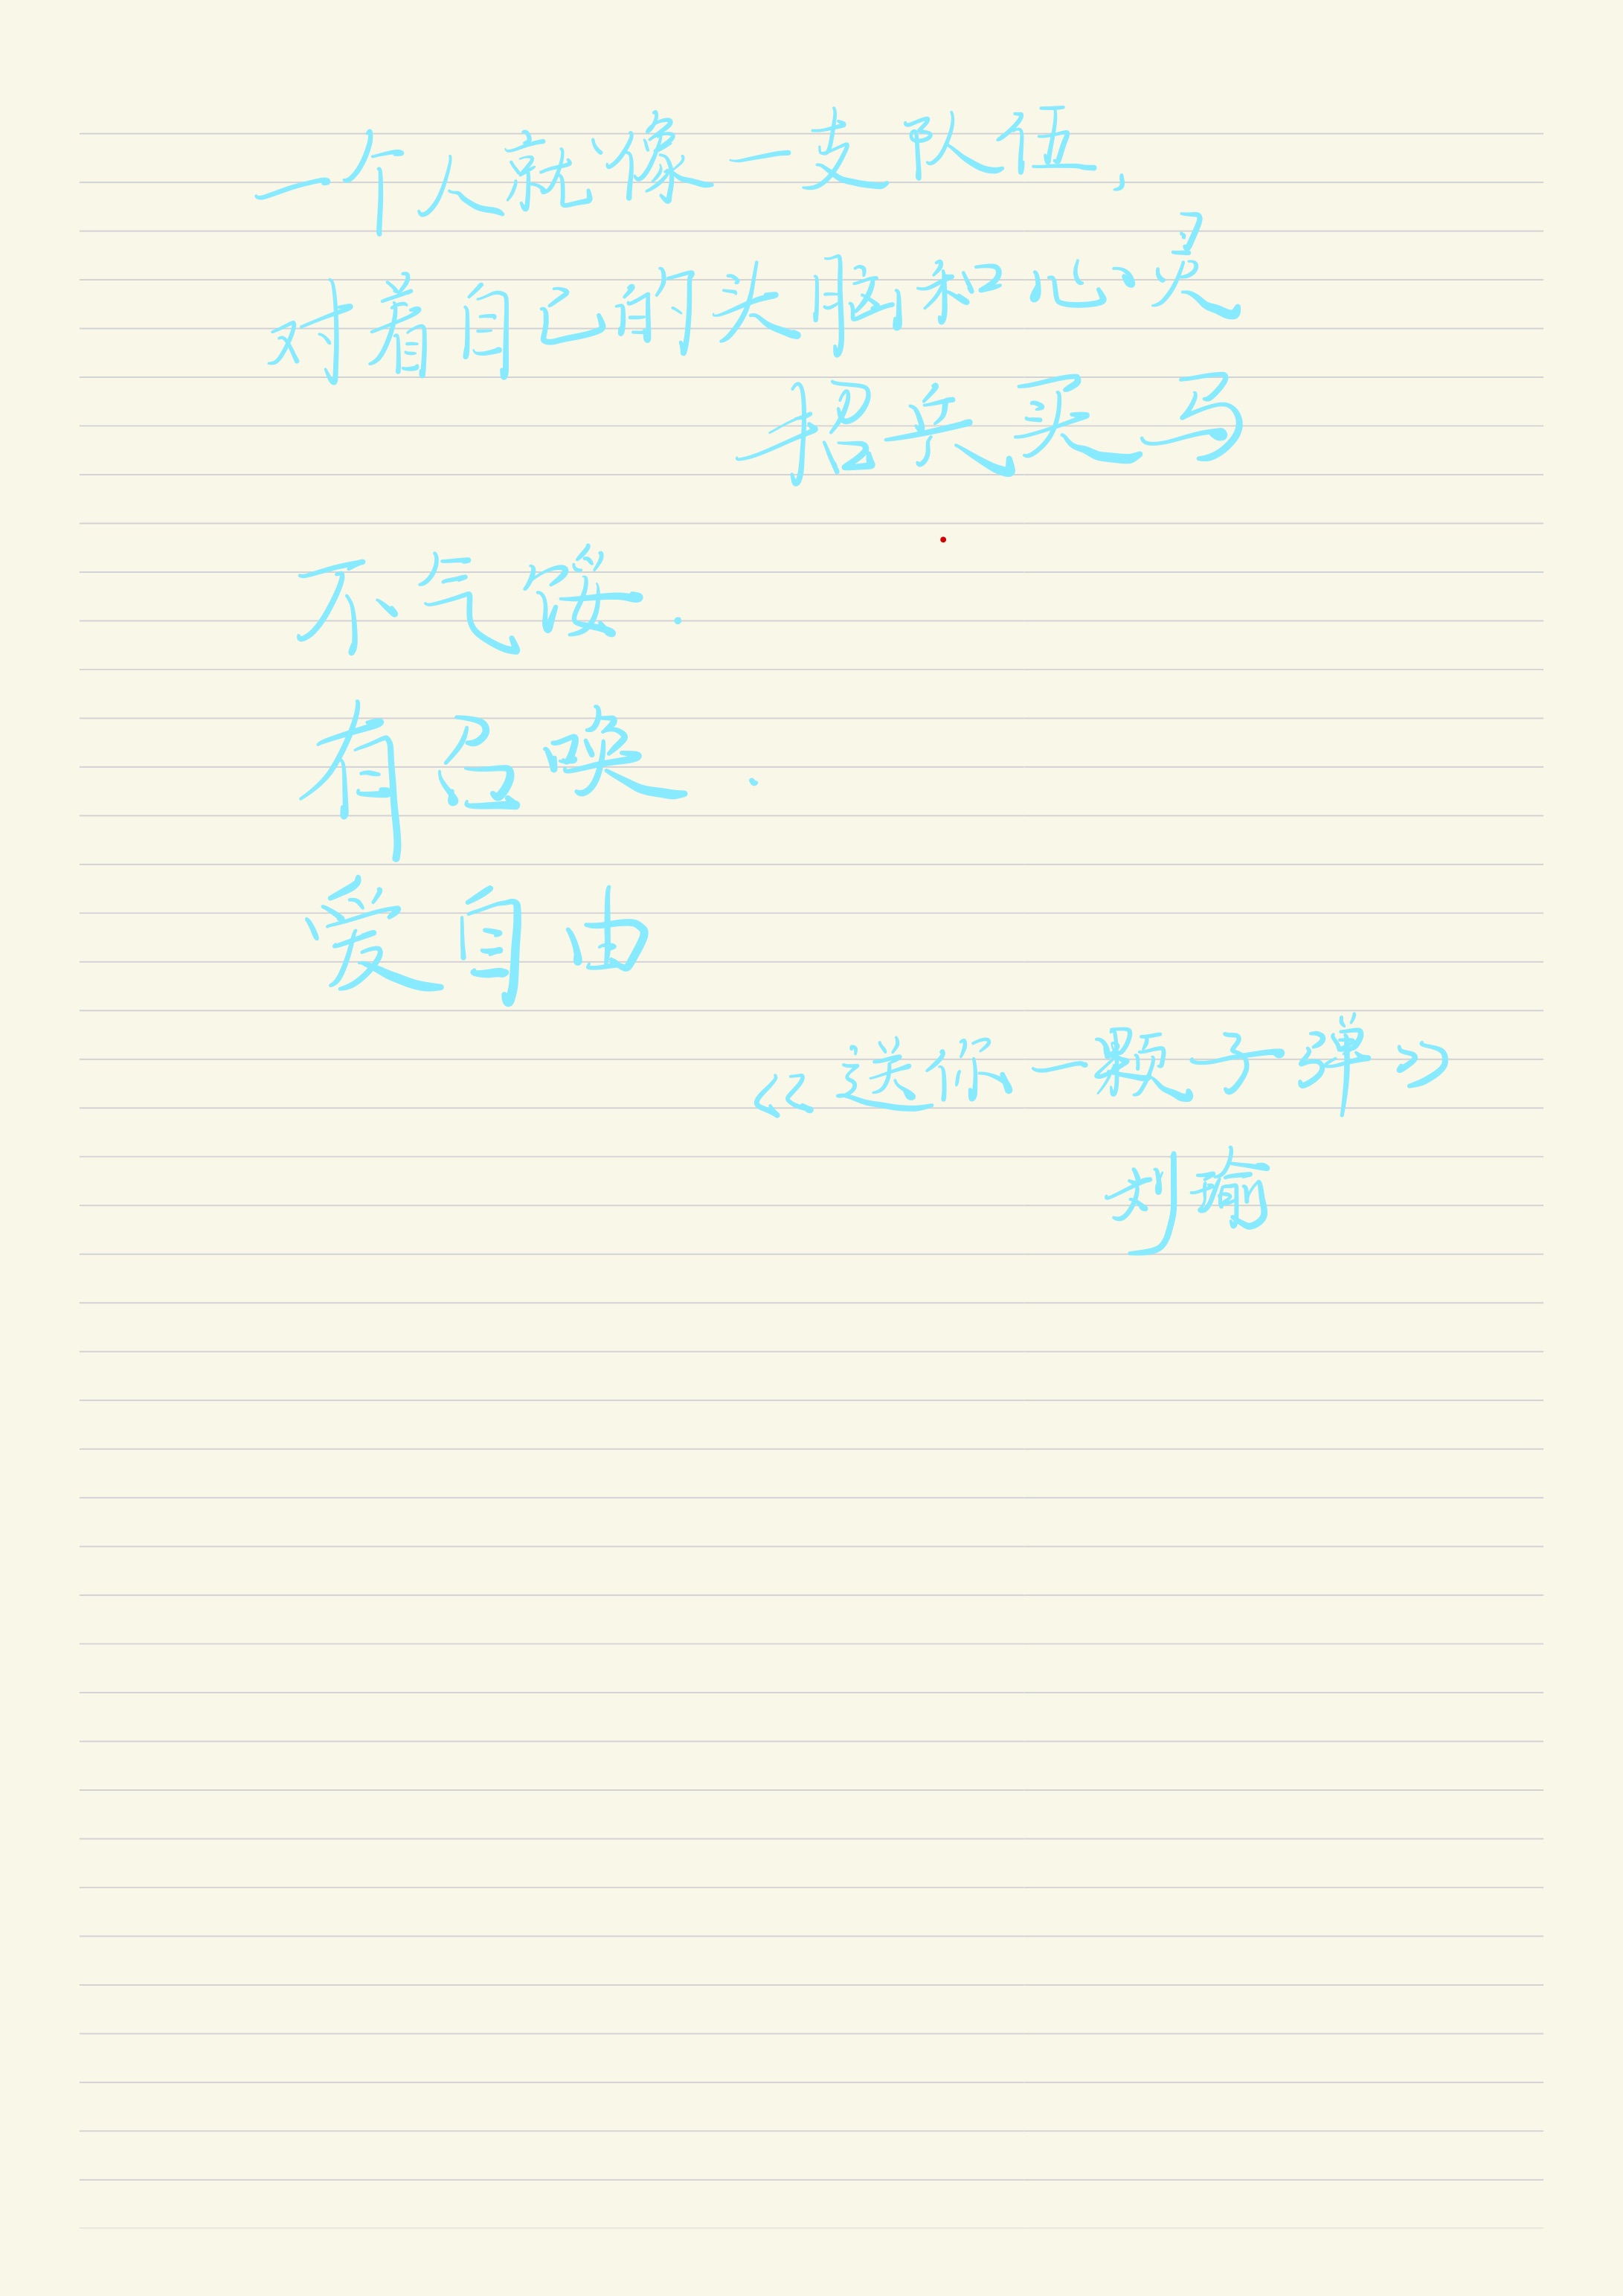 一个人就像一支队伍,
对着自己的头脑和心灵
招兵买马
不气馁.
有召唤.
爱自由
《送你一颗子弹》
刘瑜